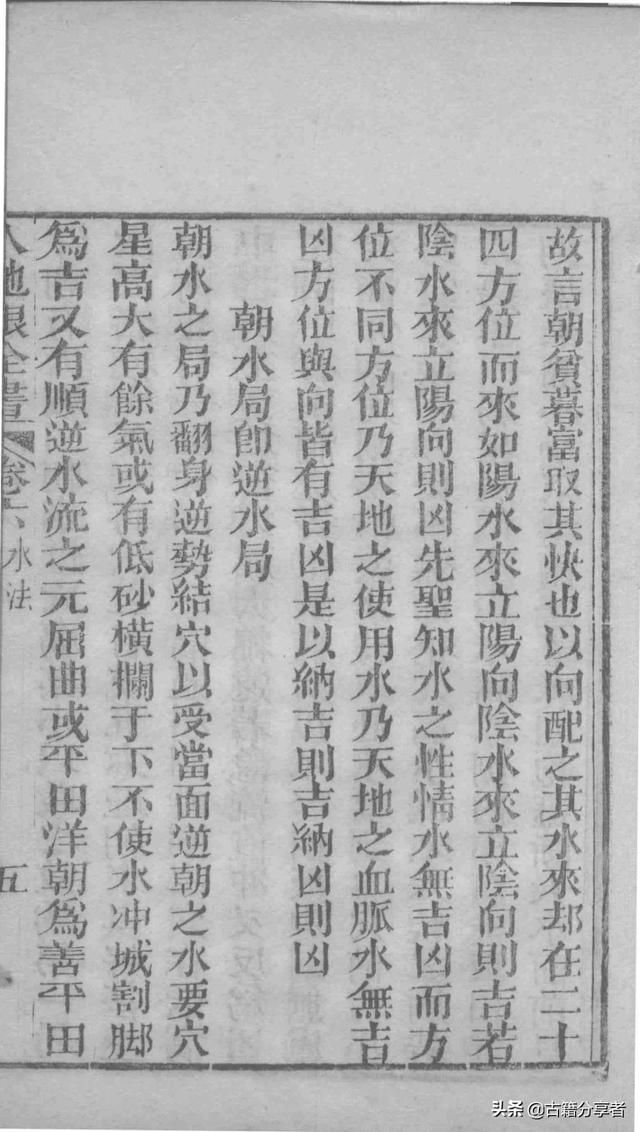 故言朝貧暮富取其快也以向配之其水來却在二十
四方位而來如陽水來立陽向陰水來立陰向則吉若
陰水來立陽向則凶先聖知水之性情水無吉凶而方
位不同方位乃天地之使用水乃天地之血脈水無吉
凶方位與向皆有吉凶是以納吉則吉納凶則凶
朝水局卽逆水局
朝水之局乃翻身逆勢結穴以受當面逆朝之水要穴
星高大有餘氣或有低砂橫攔于下不使水冲城割脚
爲吉又有順逆水流之元屈曲或平田洋朝爲善平田
地眼全書 卷六 水法 五
头条 @古籍分享者